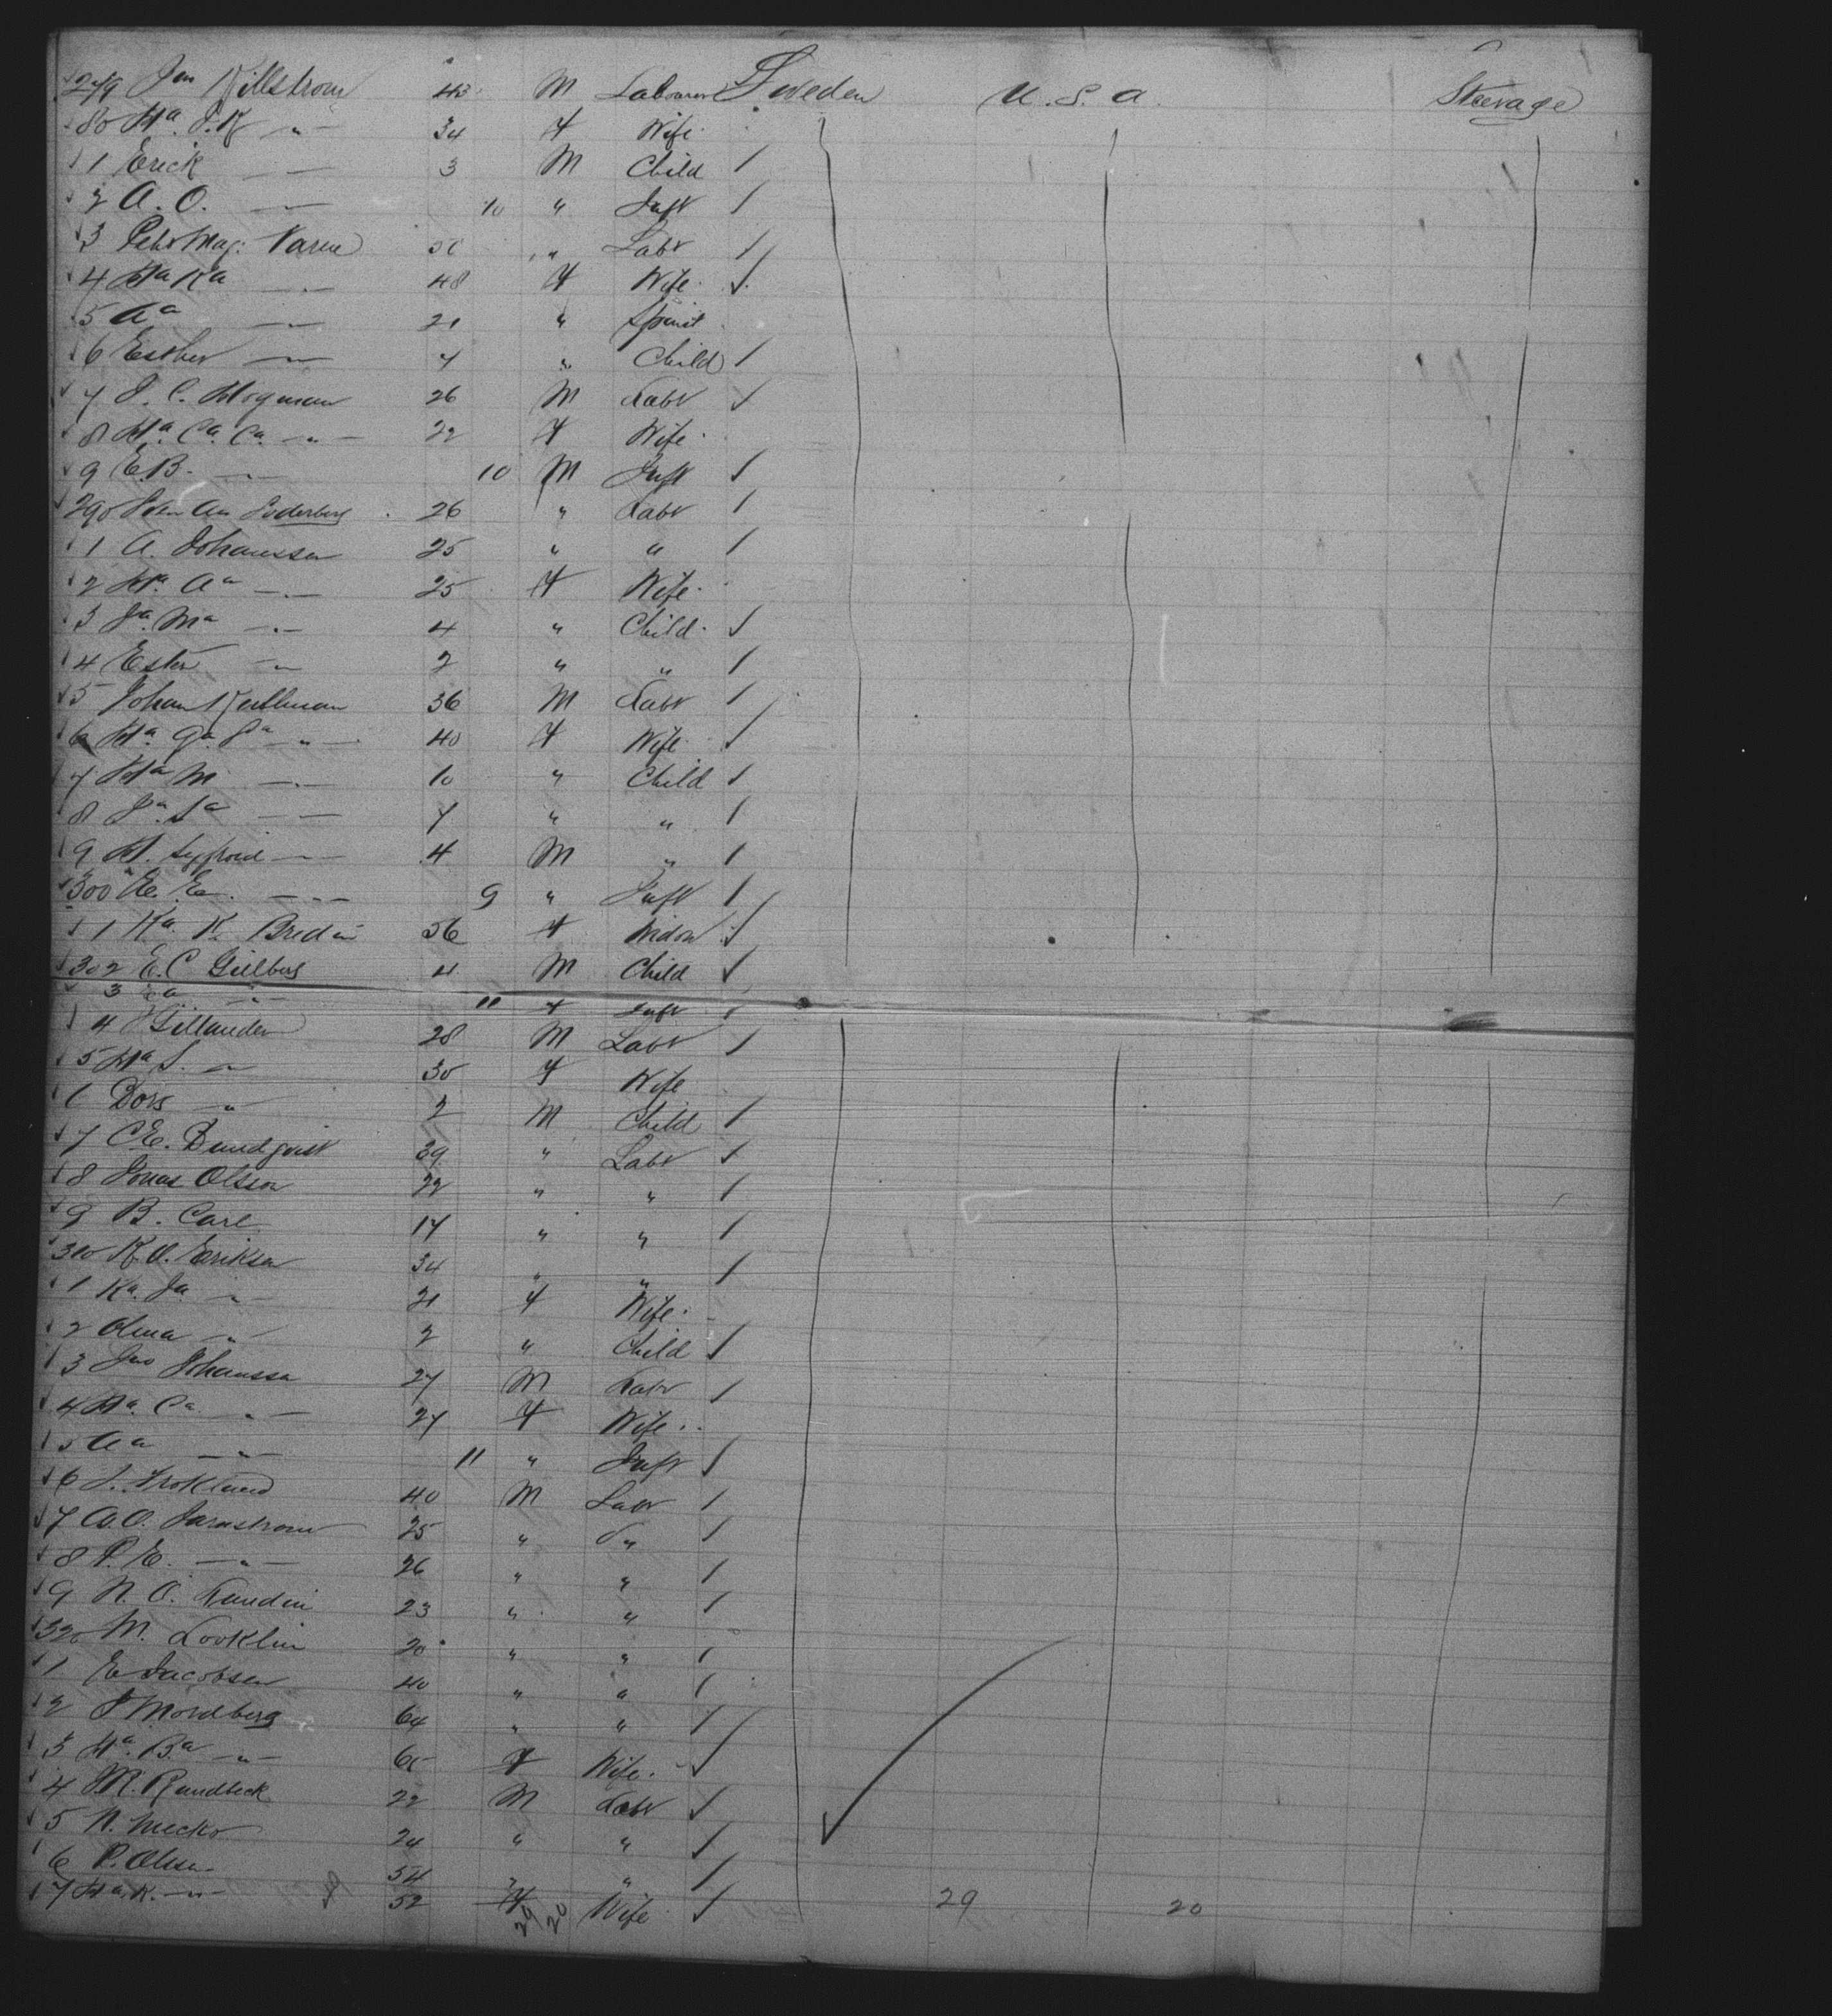 279 Jon Killstrom 43 M Laborer Sweden U.S.A. Steerage
80 Ha. S.K " 34 F Wife
1 Erick " 3 M Child
2 A. O. " 10 " Inft
3 Pehr Mag: Varen " Labr
4 Ha Ka " 48 F Wife
5 Aa " 21 " Spinst
6 Esther " 7 " Child
7 J. C. Hogman 26 M Labr
8 Ha. Ca. Ca. " 22 F Wife
9 E.B. " 10 M Inft
290 Soderberg 26 " Labr
1 A. Johansson 25 " "
2 Ha. Aa " 25 F Wife
3 Ja. Ma " 4 " Child
4 Ester " 2 " "
5 Johan 36 M Labr
6 Ha. Ga. Sa " 40 F Wife
7 Ha M " 10 " Child
8 Ja. Sa " 7 " "
9 H. " 4 M "
300 E. E. " 9 " Inft
1 Ka. K. Bredin 56 F Widow
302 E. C Gillberg 4 M Child
3 Ea " 11 F Inft
4 Gillander 28 M Labr
5 Ha S. " 30 F Wife
6 Dors " 2 M Child
7 C E. 39 " Labr
8 Jonas Olsson 22 " "
9 B. Carl 17 " "
310 K. O. Erikson 34 " "
1 Ka. Ja " 21 F Wife
2 Olina " 2 " Child
3 Jno Johansson 27 M Labr
4 Ha. Ca " 27 F Wife
5 Aa " 11 " Inft
6 J. 40 M Labr
7 A. O. Jarnstrom 25 " "
8 P. E. " 26 " "
9 N. O. Lundin 23 " "
320 M. 20 " "
1 E Jacobsen 40 " "
2 Nordberg 64 " "
3 Ha. Ba " F Wife
4 Rundbeck 22 M Labr
5 N. 24 " "
6 P. Olsson 54 " "
7 Ha. K. " 52 F Wife 29 20
29 20